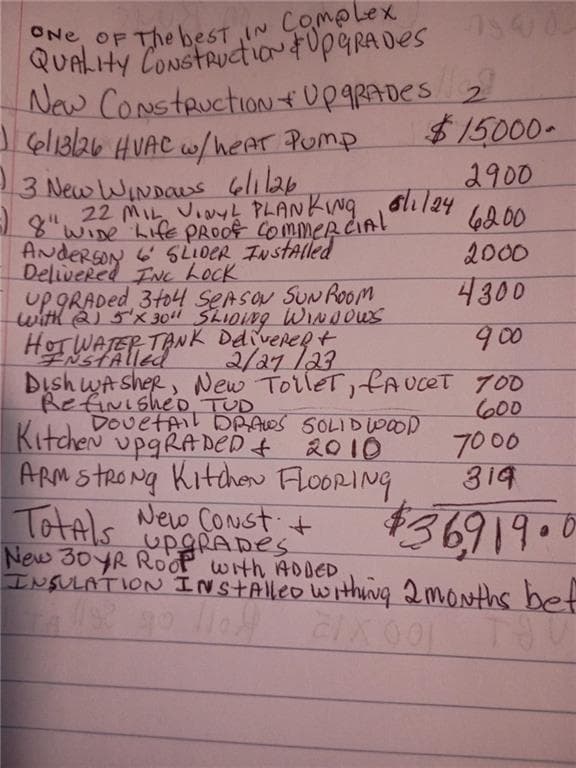 ONE OF The best IN Complex
QUALITY CONSTRUCTION & UPGRADES
New Construction + UPGRADES 2
) 6/13/26 HVAC w/ heAT Pump $15,000.
) 3 New WINDOWS 6/1/26 2900
22 MIL VINYL PLANKING 6/1/24
) 8" WIDE LIFE PROOF COMMERCIAL 6200
ANDERSON 6' SLIDER INSTAlled 2000
Delivered INC LOCK
UPGRADED 3 to 4 SEASON SUN ROOM 4300
with (2) 5'X30" SLIDING WINDOWS
HOT WATER TANK Delivered + 900
INSTAlled 2/27/23
DISHWASHER, New Toilet, fAUCET 700
REFINISHED TUD 600
DOVETAIL DRAWS SOLID WOOD
Kitchen UPGRADED + 2010 7000
ARMSTRONG Kitchen FLOORING 319
TOTALS New Const. + $36,919.0
UPGRADES
New 30 YR ROOF with ADDED
INSULATION INSTAlled withing 2 months bef